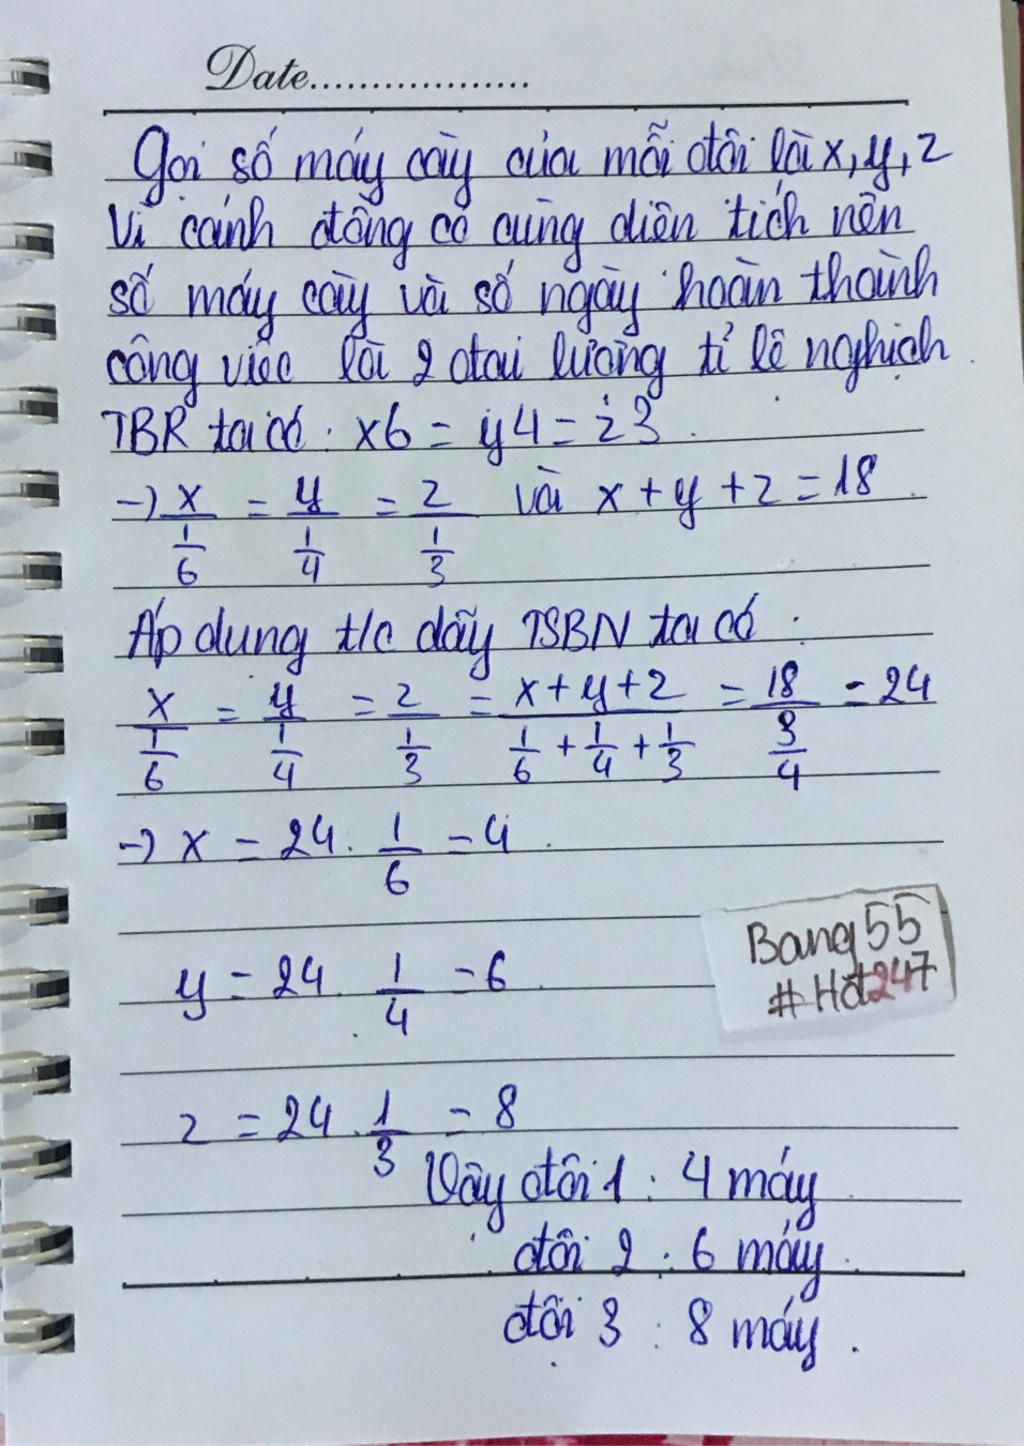 Date..................
Gọi số máy cày của mỗi đội là x, y, z
Vì cánh đồng có cùng diện tích nên
số máy cày và số ngày hoàn thành
công việc là 2 đại lượng tỉ lệ nghịch.
TBR ta có: x6 = y4 = z3.
→ x/(1/6) = y/(1/4) = z/(1/3) và x + y + z = 18.
Áp dụng t/c dãy TSBN ta có:
x/(1/6) = y/(1/4) = z/(1/3) = (x + y + z)/(1/6 + 1/4 + 1/3) = 18/(3/4) = 24
→ x = 24. 1/6 = 4.
y = 24. 1/4 = 6.
Bang55
#Hd247
z = 24. 1/3 = 8
Vậy đội 1: 4 máy.
đội 2: 6 máy.
đội 3: 8 máy.